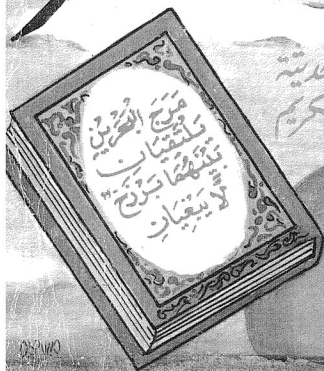 مَرَجَ الْبَحْرَيْنِ
يَلْتَقِيَانِ
بَيْنَهُمَا بَرْزَخٌ
لَّا يَبْغِيَانِ